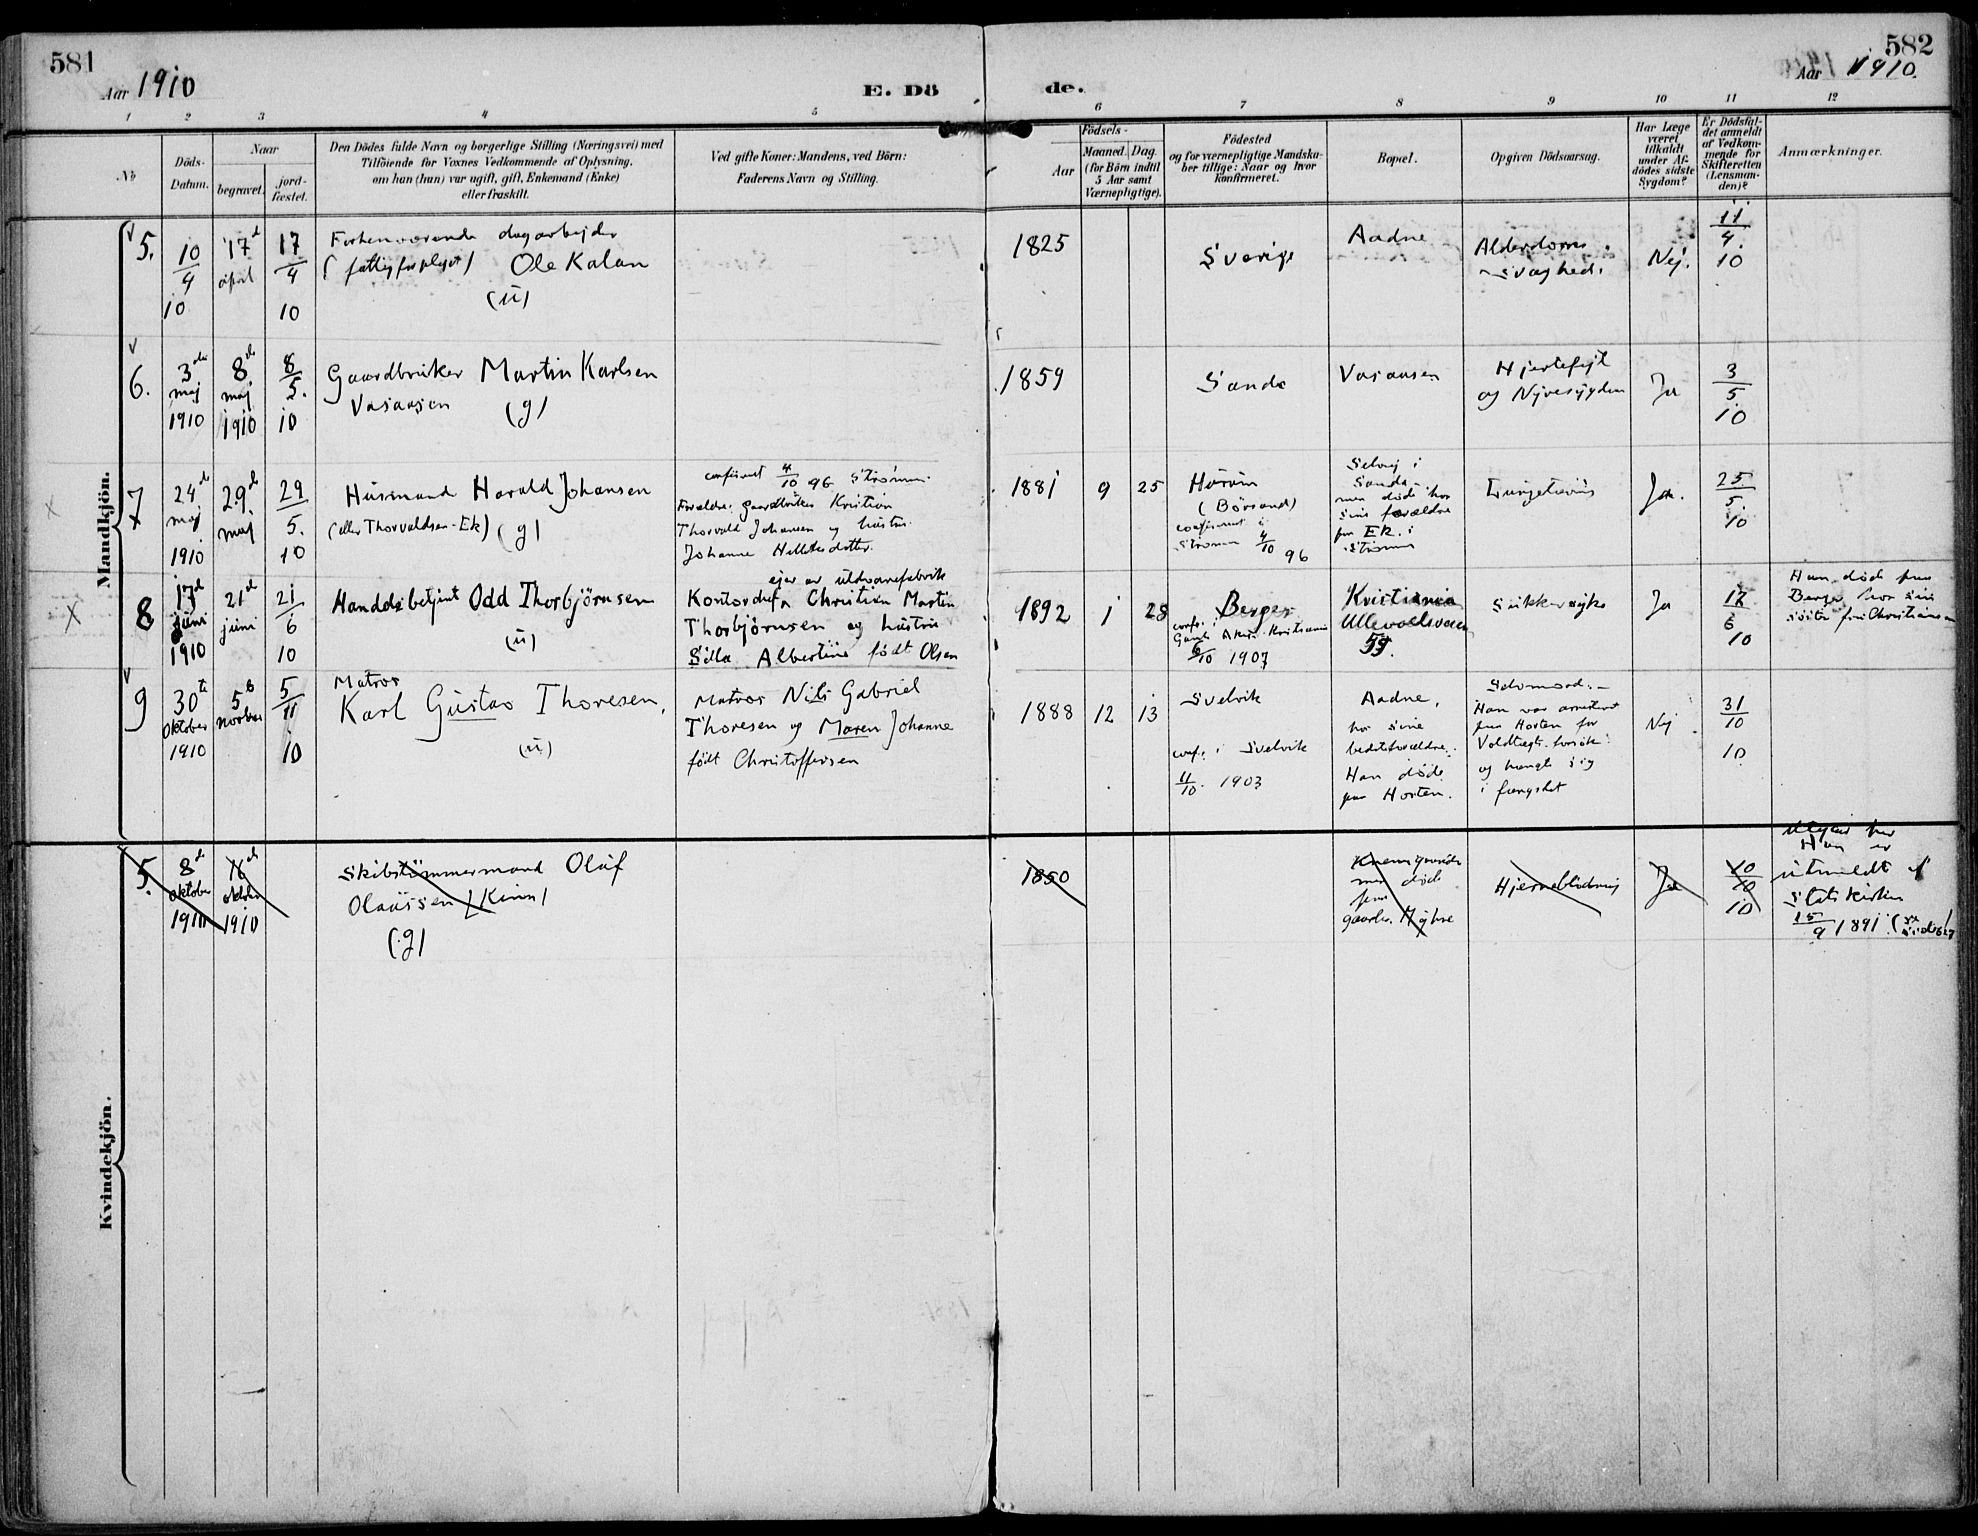 581
Aar 1910
E. Dö
de.
582
Aar 1910.
1 2 3 4 5 6 7 8 9 10 11 12
No
Döds-
Datum.
Naar
begravet.
jord-
fæstet.
Den Dödes fulde Navn og borgerlige Stilling (Næringsvei) med
Tilföiende for Voxnes Vedkommende af Oplysning,
om han (hun) var ugift, gift, Enkemand (Enke)
eller fraskilt.
Ved gifte Koner: Mandens, ved Börn:
Faderens Navn og Stilling.
Födsels-
Aar
Maaned. Dag.
(for Börn indtil
5 Aar samt
Værnepligtige).
Födested
og for værnepligtige Mandska-
ber tillige: Naar og hvor
konfirmeret.
Bopæl.
Opgiven Dödsaarsag.
Har Læge
været
tilkaldt
under Af-
dödes sidste
Sygdom?
Er Dödsfal-
det anmeldt
af Vedkom-
mende for
Skifteretten
(Lensman-
den)?
Anmærkninger.
Mandkjön.
5.
10/4 10
17d april
17/4 10
Forhenværende dagarbejder
(fattigforplejet) Ole Kalan
(ü)
1825
Sverige
Aadne
Alderdoms-
svaghed.
Nej.
11/4. 10
6.
3die maj 1910
8de maj 1910
8/5. 10
Gaardbruker Martin Karlsen
Vasaasen (g)
1859
Sande
Vasaasen
Hjertefejl
og Nyresygdom
Ja
3/5 10
7
24de maj 1910
29de maj
29/5. 10
Husmand Harald Johansen
(eller Thorvaldsen-Ek) (g)
confirmeret 4/10 96 Strømm.
Forældre: gaardbruker Kristian
Thorvald Johansen og hustru
Johanne
1881 9 25
Hurum
(Börsand)
confirmeret i
Strømm 4/10 96
Selvej i
Sande
men døde hos
sine forældre
paa Ek. i
Strømm
Ja.
25/5. 10
8
17de juni 1910
21de juni
21/6 10
Handelsbetjent Odd Thorbjörnsen
(ü)
ejer av uldvarefabrik
Kontorchef Christian Martin
Thorbjörnsen og hustru
Silla Albertine født Olsen
1892 1 28
Berger
conf. i
Gamle Akers Kristiania
6/10 1907
Kristiania
Ullevoldsveien
59.
Sukkersyke
Ja
17/6 10
Han døde paa
Berger hos sin
søster fru Christiansen
9
30te oktober 1910
5te novber
5/11 10
Matros
Karl Gustav Thoresen,
(ü)
Matros Nils Gabriel
Thoresen og Maren Johanne
født Christoffersen
1888 12 13
Svelvik
conf. i Svelvik
11/10. 1903
Aadne,
hos sine
bedsteforældre.
Han døde
paa Horten.
Selvmord. -
Han var arresteret
paa Horten for
Voldtægts-forsök
og hængte sig
i fængslet
Nej
31/10 10
Kvindekjön.
5.
8de oktober 1910
oktober 1910
Skibstömmermand Oluf
Olaüssen (Kinn)
(g)
1850
men døde
paa
gaarden Myhre
Hjerneblödning
Ja
10/10 10
utgaar her
Han er
utmeldt af
Statskirken
15/9 1891. (se